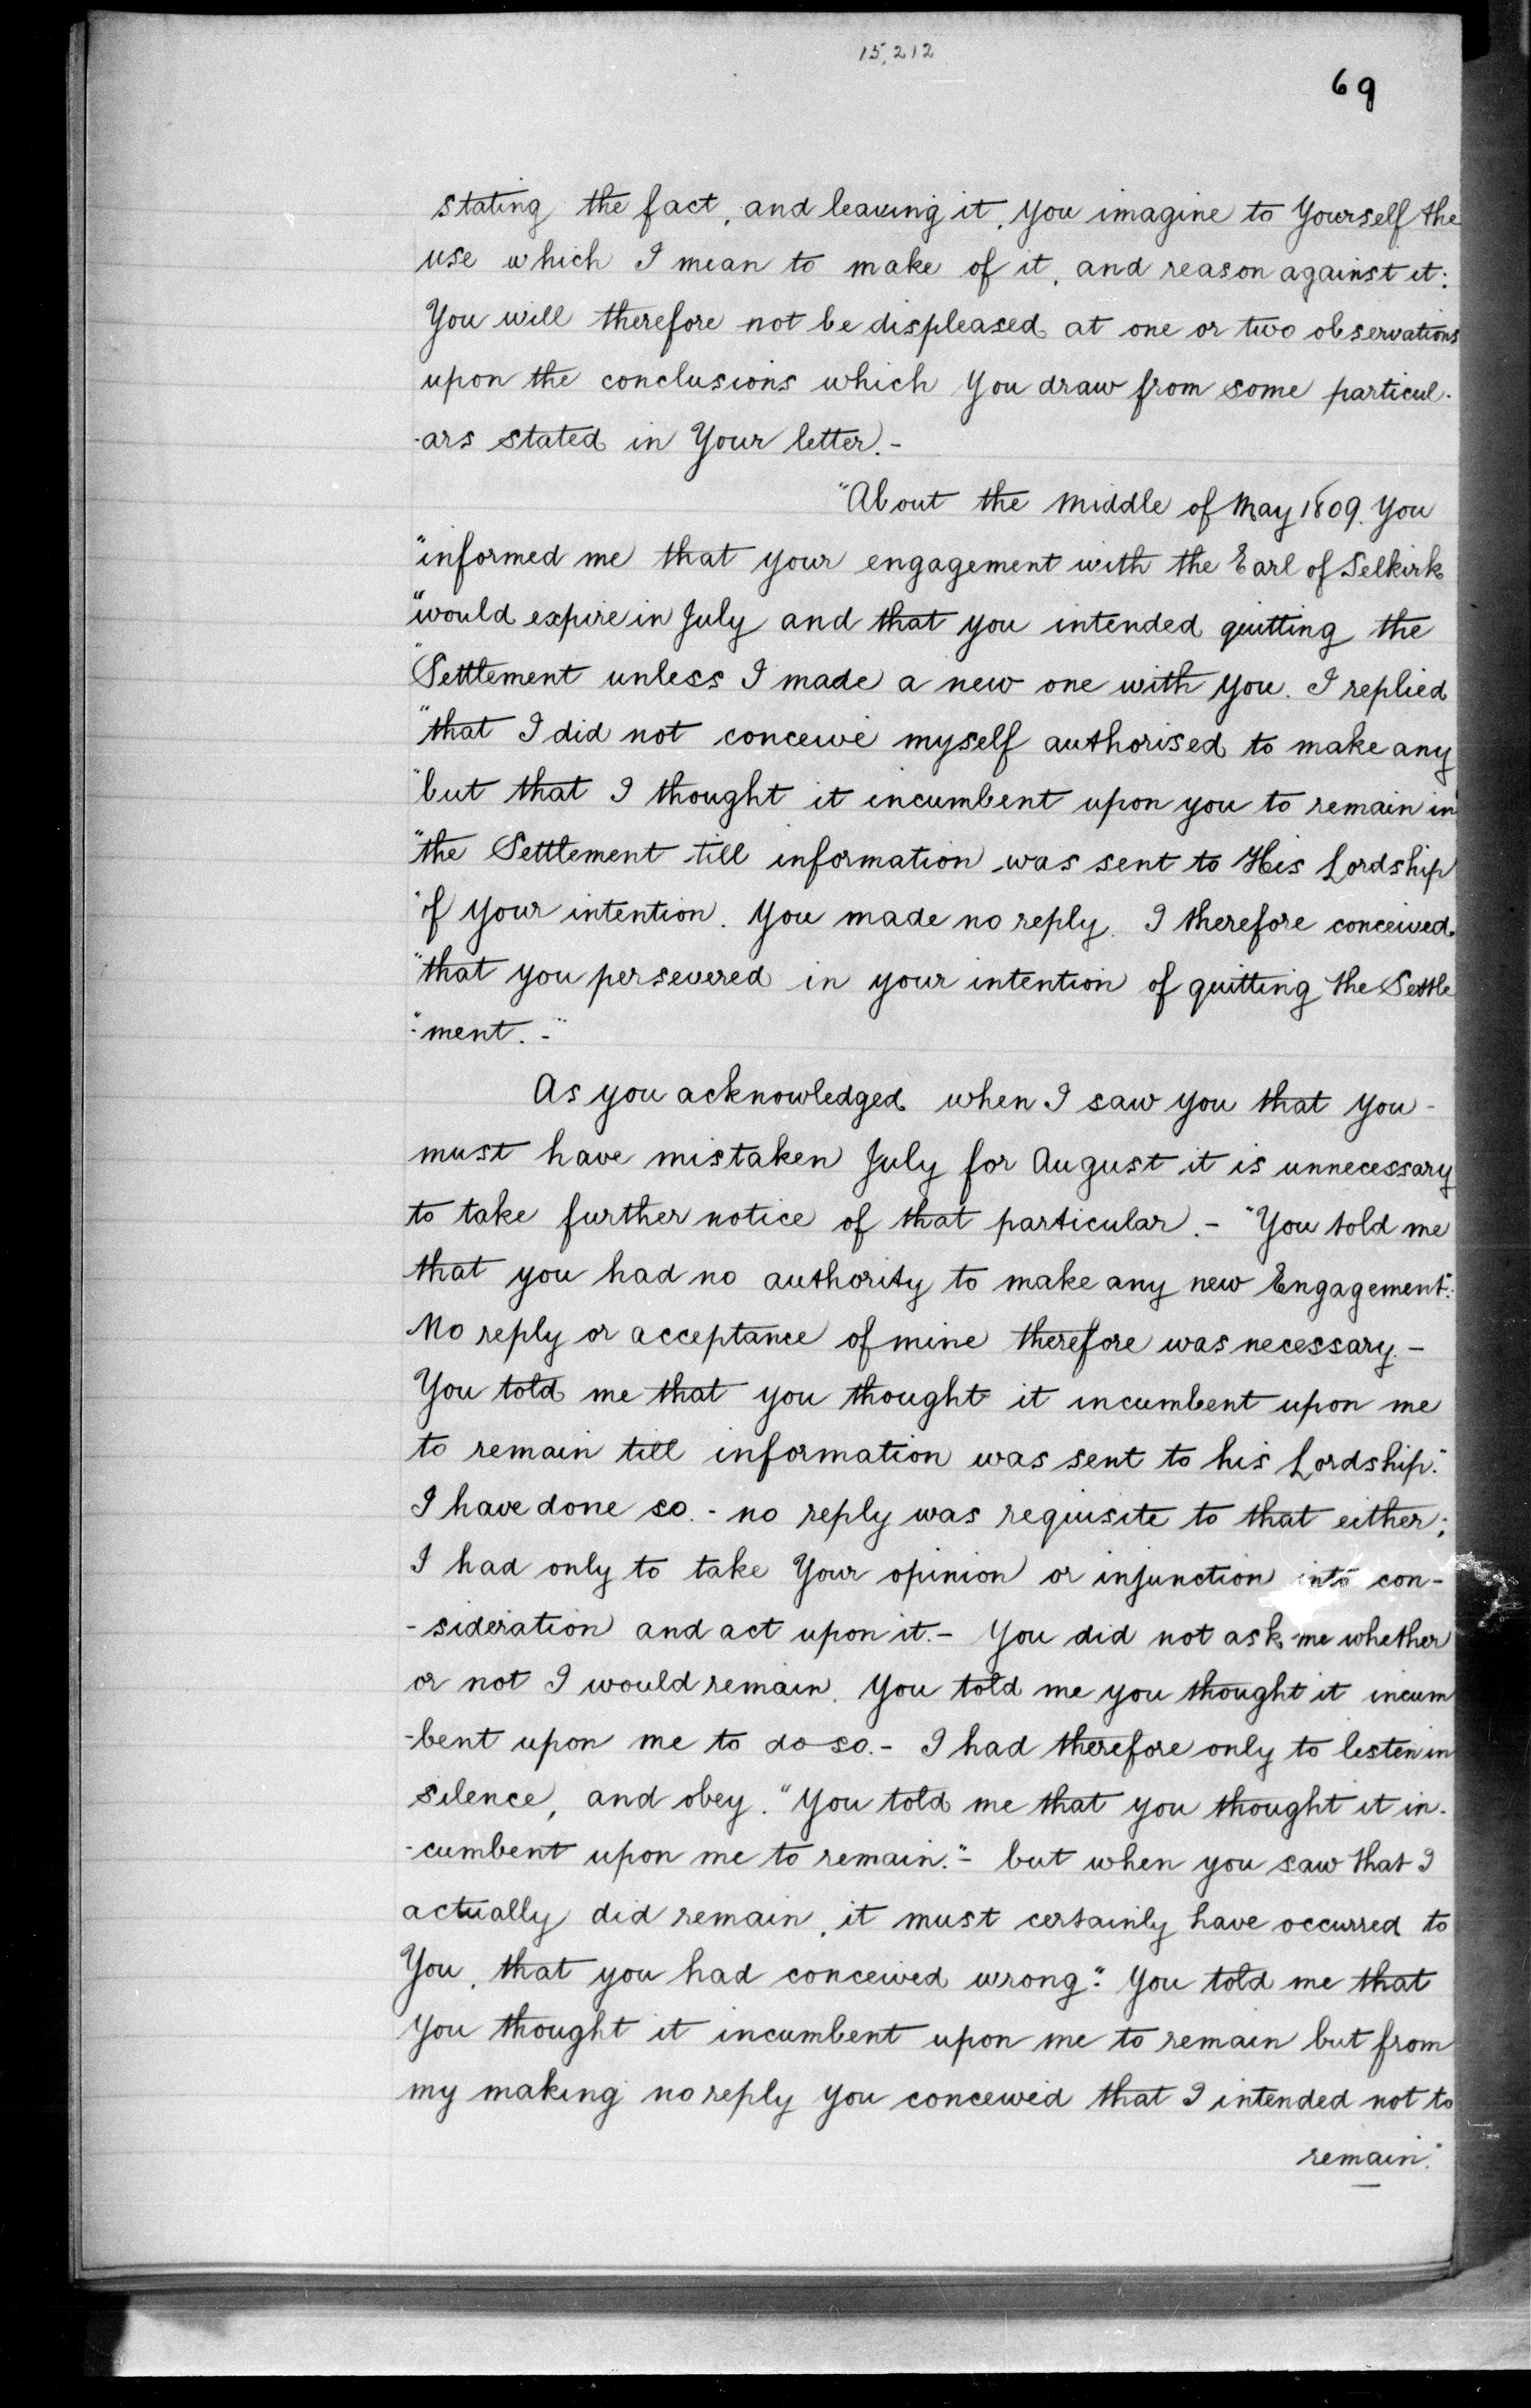 15,212
69
stating the fact, and leaving it, you imagine to Yourself the
use which I mean to make of it, and reason against it:
You will therefore not be displeased at one or two observations
upon the conclusions which You draw from some particul-
-ars stated in Your letter.-
"About the middle of May 1809. You
"informed me that your engagement with the Earl of Selkirk
"would expire in July and that you intended quitting the
"Settlement unless I made a new one with you. I replied
"that I did not conceive myself authorised to make any
"but that I thought it incumbent upon you to remain in
"the Settlement till information was sent to His Lordship
"of your intention. You made no reply. I therefore conceived
"that you persevered in your intention of quitting the Settle
"-ment.-"
As you acknowledged when I saw you that you -
must have mistaken July for August it is unnecessary
to take further notice of that particular.- "You told me
that you had no authority to make any new Engagement".
No reply or acceptance of mine therefore was necessary.-
You told me that you thought it incumbent upon me
to remain till information was sent to his Lordship."
I have done so.- no reply was requisite to that either;
I had only to take Your opinion or injunction into con-
-sideration and act upon it.- You did not ask me whether
or not I would remain. You told me you thought it incum
-bent upon me to do so.- I had therefore only to listen in
silence, and obey. "You told me that you thought it in-
-cumbent upon me to remain."- but when you saw that I
actually did remain, it must certainly have occurred to
You, that you had conceived wrong." You told me that
you thought it incumbent upon me to remain but from
my making no reply you conceived that I intended not to
remain."